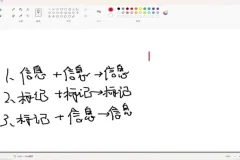 1、信息 + 信息 → 信息
2、标记 + 标记 → 标记
3、标记 + 信息 → 信息